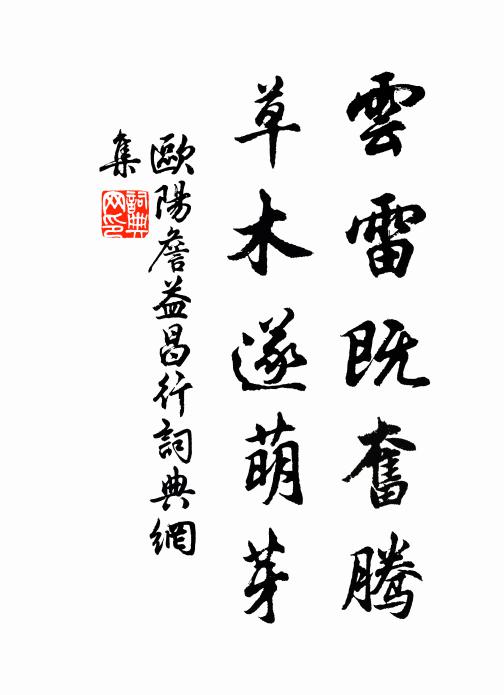 雲雷既奮騰
草木遂萌芽
歐陽詹益昌行詞典網
集
詞典
网印